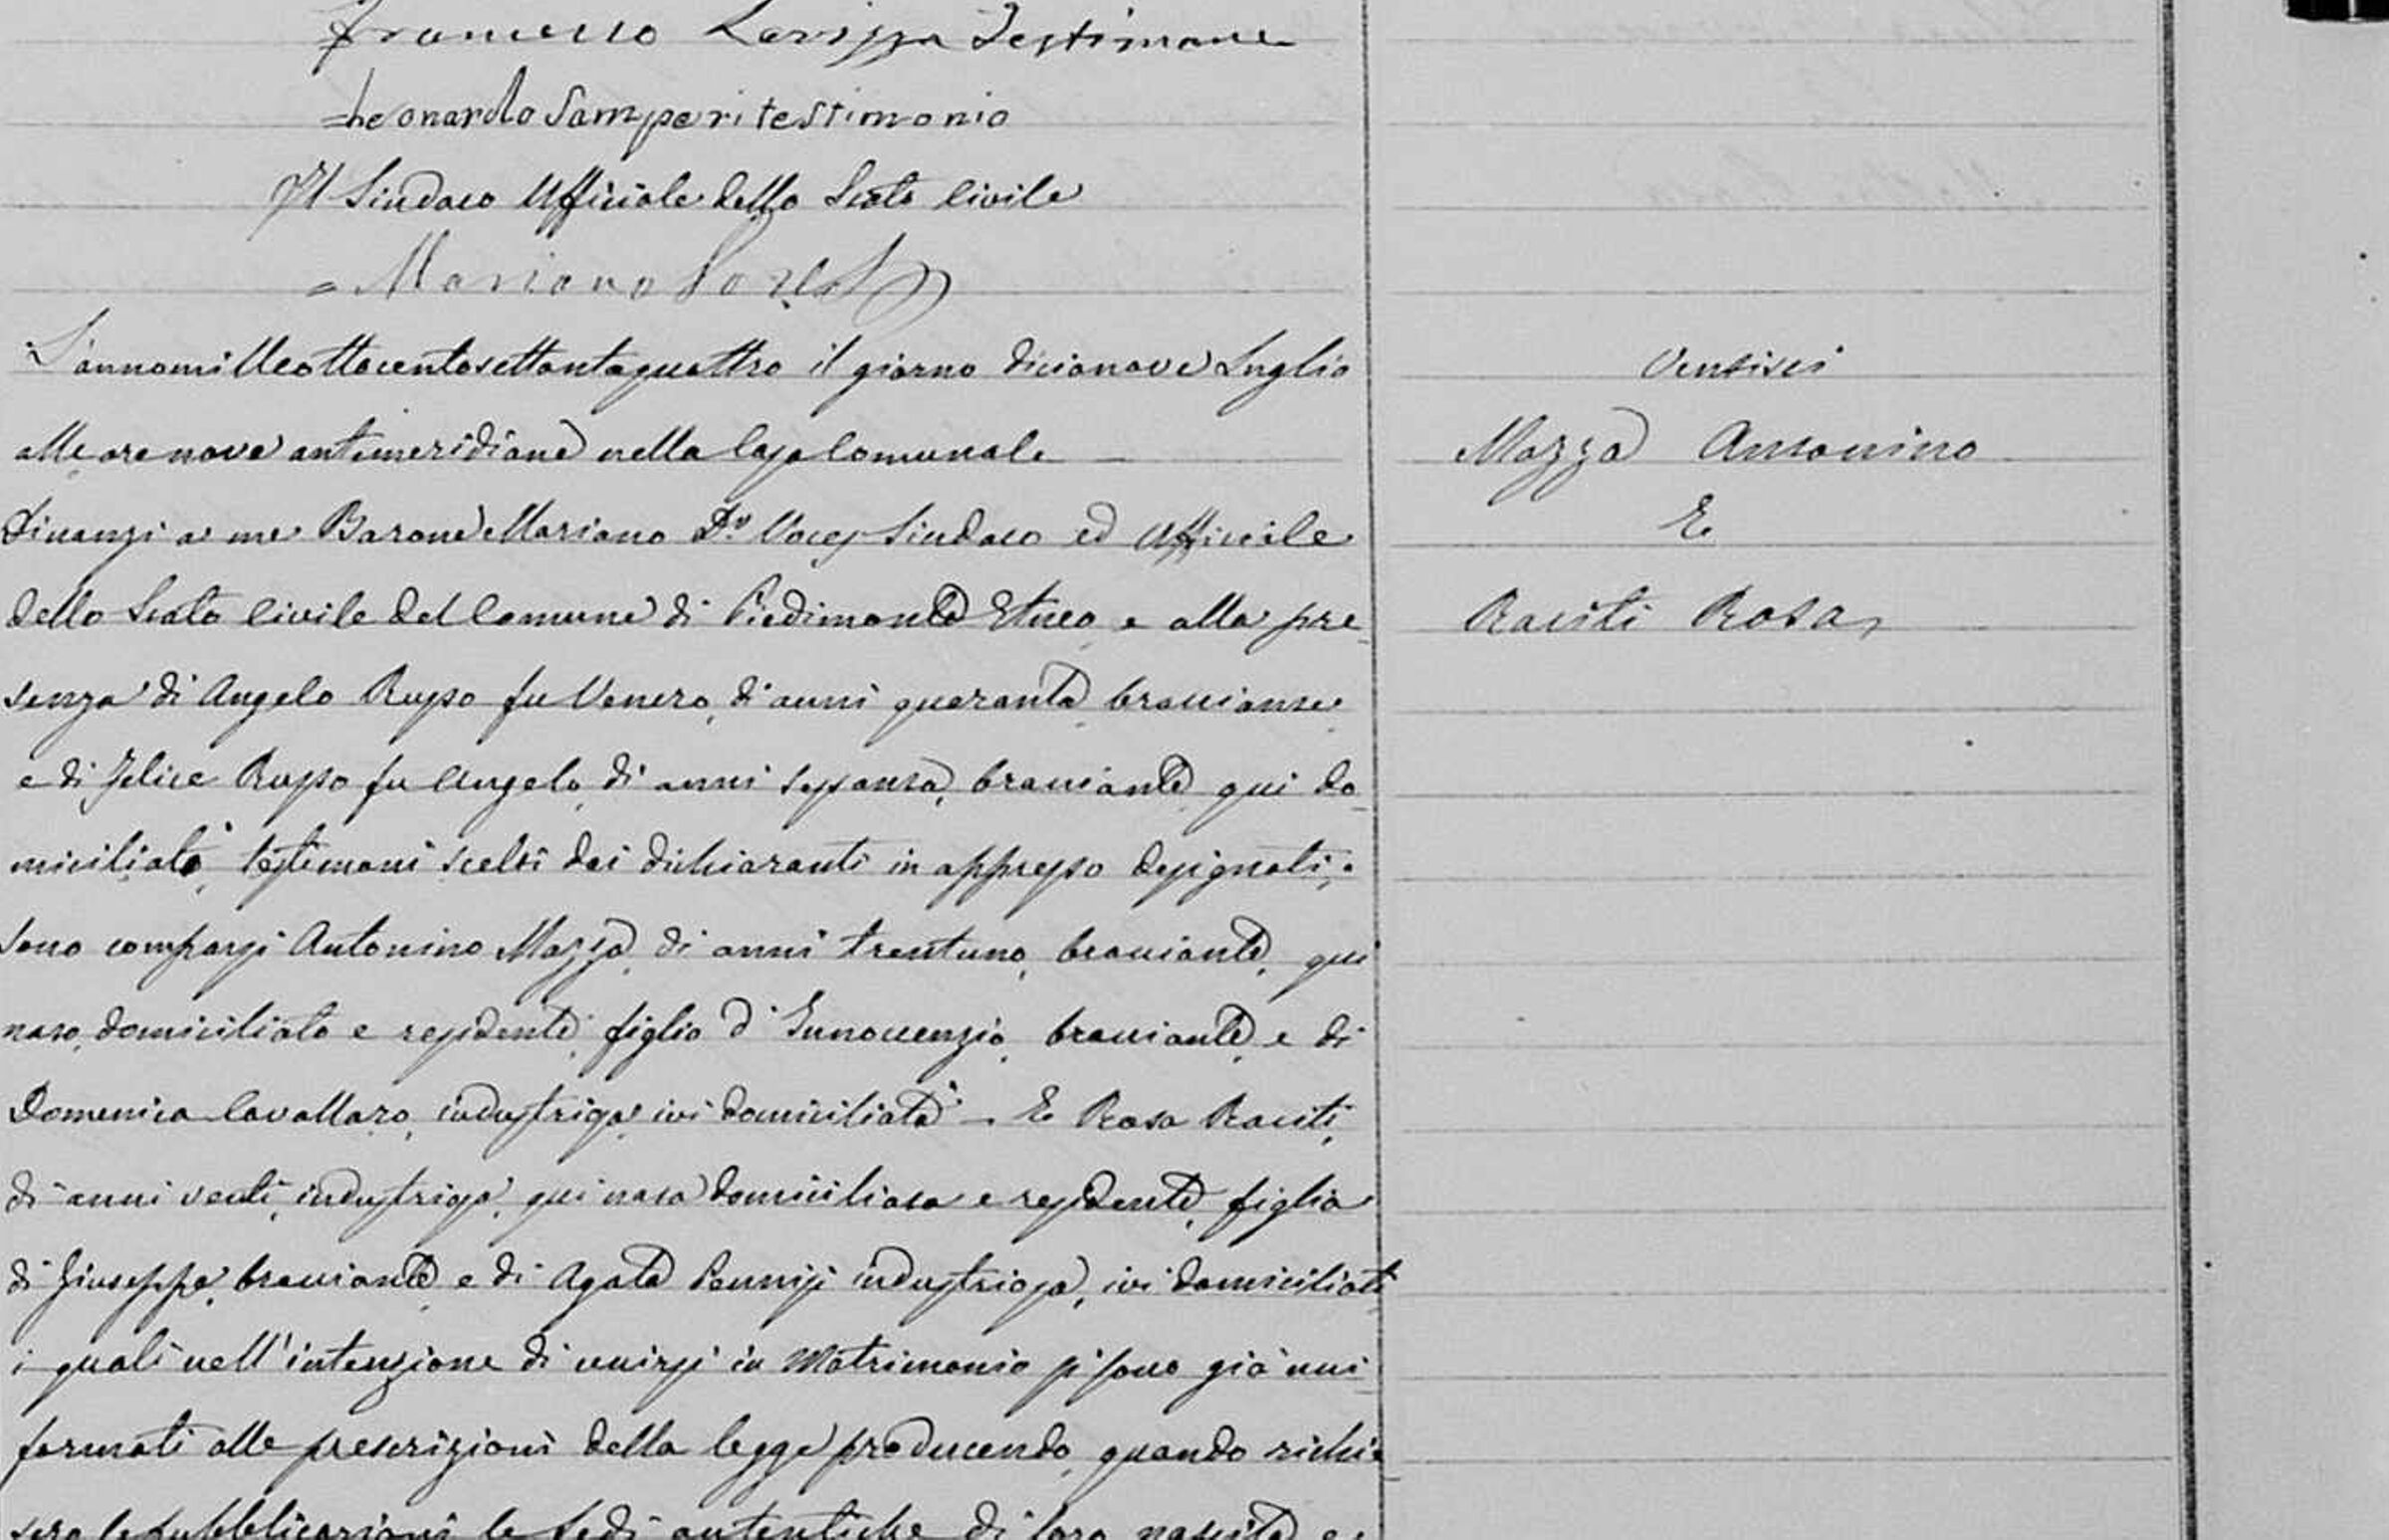 Francesco Testimone
Leonardo Samperi testimonio
Il Sindaco Ufficiale dello Stato Civile
Mariano
L'annomilleottocentosettantaquattro il giorno dicianove Luglio
alle ore nove antimeridiane nella Casa Comunale
dinanzi a me Barone Mariano Dr. Sindaco ed Uffiziale
dello Stato Civile del Comune di Piedimonte Etneo e alla pre
senza di Angelo Russo fu Venero, di anni quaranta bracciante
e di Felice Russo fu Angelo, di anni sessanta, bracciante qui do
miciliati testimoni scelti dai dichiaranti in appresso designati;
sono comparsi Antonino Mazza, di anni trentuno, bracciante, qui
nato, domiciliato e residente, figlio d'Innocenzio, bracciante, e di
Domenica Cavallaro, industriosa ivi domiciliati - E Rosa Raciti,
di anni venti, industriosa, qui nata domiciliata e residente, figlia
di Giuseppe, bracciante e di Agata Pennisi industriosa, ivi domiciliati
i quali nell'intenzione di unirsi in Matrimonio si sono già uni
formati alle prescrizioni della legge producendo, quando richie
sero le pubblicazioni le fedi autentiche di loro nascita e
Ventisei
Mazza Antonino
E
Raciti Rosa